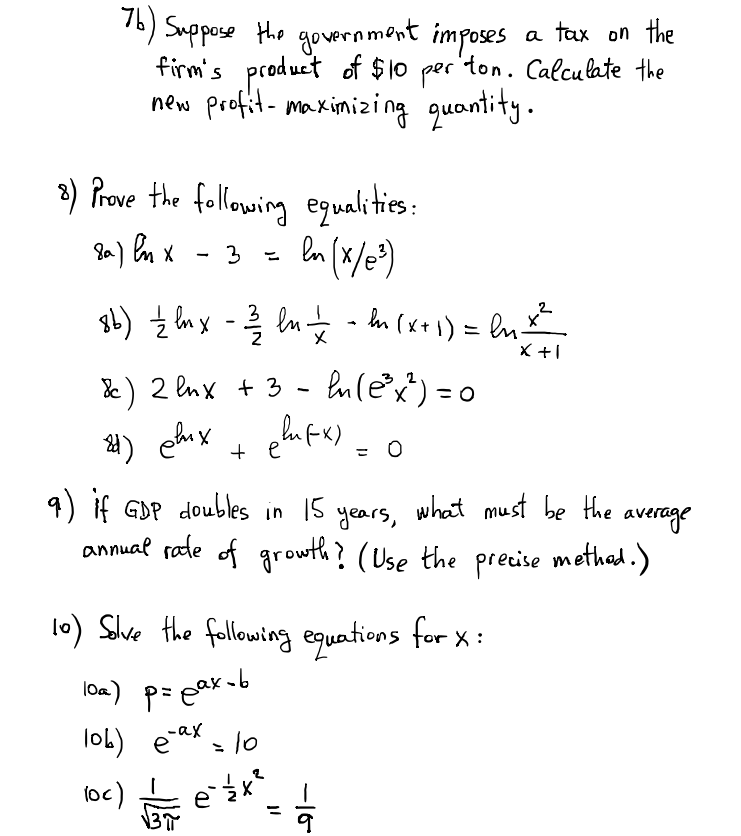 7b) Suppose the government imposes a tax on the
firm's product of $10 per ton. Calculate the
new profit-maximizing quantity.
8) Prove the following equalities:
8a) ln x - 3 = ln (x/e³)
8b) 1/2 ln x - 3/2 ln 1/x - ln (x+1) = ln x²/(x+1)
8c) 2 ln x + 3 - ln(e³x²) = 0
8d) e^(ln x) + e^(ln(-x)) = 0
9) if GDP doubles in 15 years, what must be the average
annual rate of growth? (Use the precise method.)
10) Solve the following equations for x:
10a) p = e^(ax-b)
10b) e^(-ax) = 10
10c) 1/√(3π) e^(-1/2 x²) = 1/9